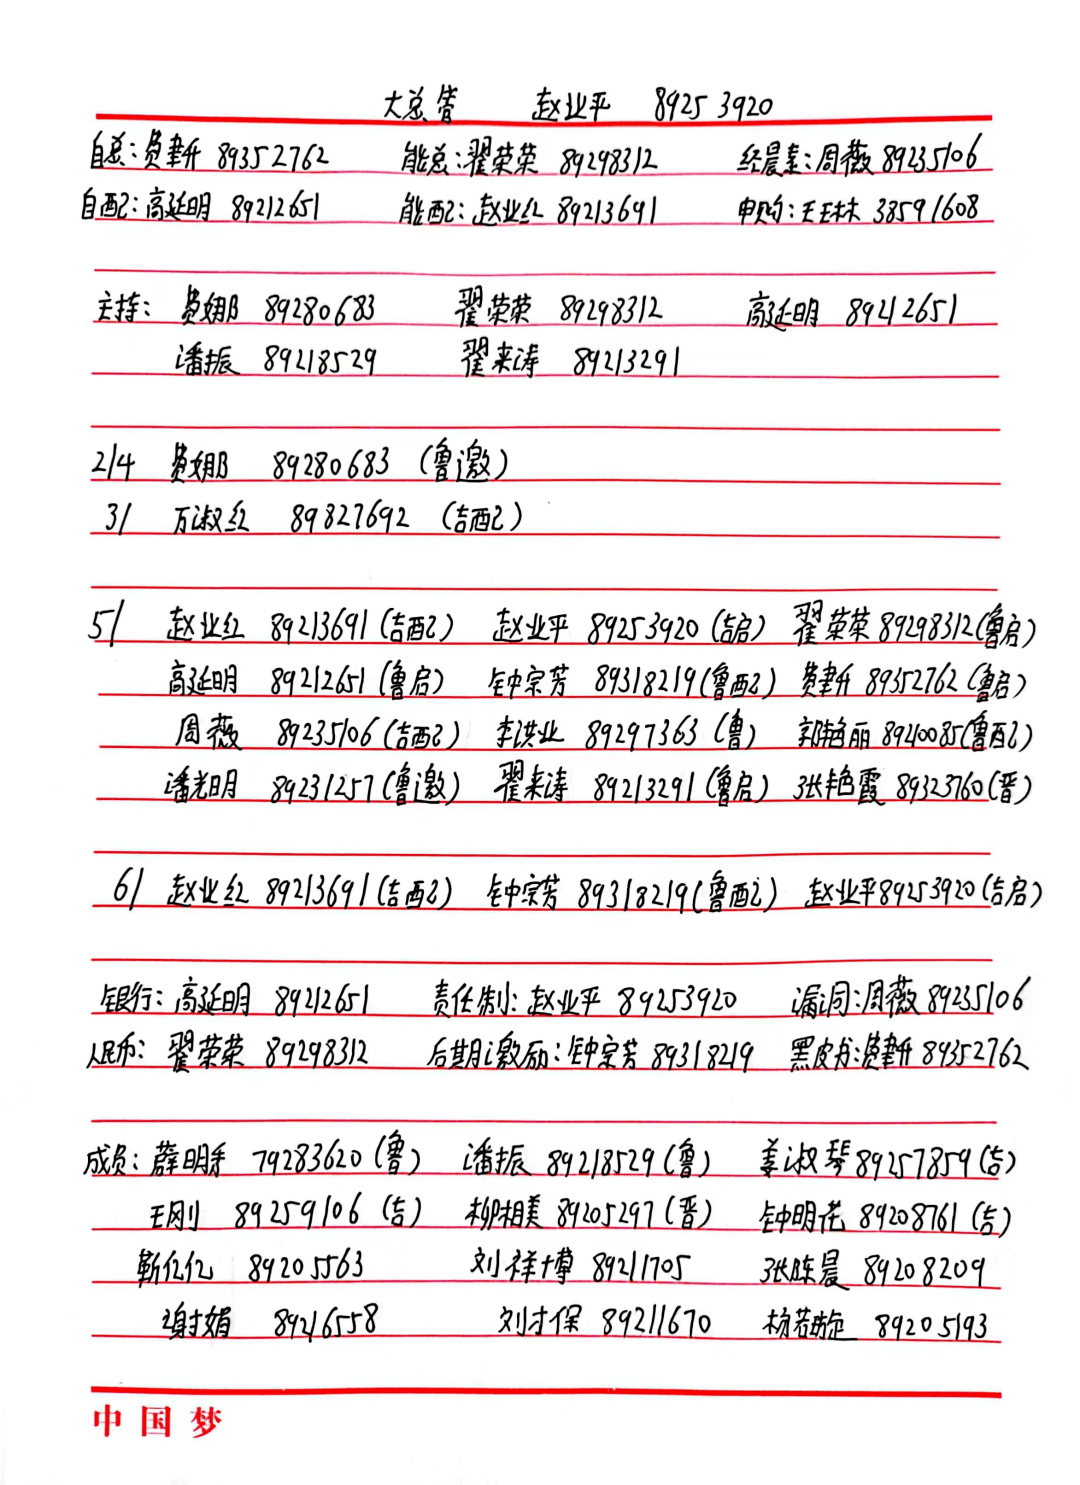 大总管 赵业平 89253920
自总:费聿升 89352762 能总:翟荣荣 89298312 经晨素:周薇 89235106
自配:高延明 89212651 能配:赵业红 89213691 申购:王玉林 38591608
主持: 费娜 89280683 翟荣荣 89298312 高延明 89212651
潘振 89218529 翟来涛 89213291
2/4 费娜 89280683 (鲁邀)
3/ 万淑红 89827692 (吉配)
5/ 赵业红 89213691(吉配) 赵业平 89253920(吉启) 翟荣荣 89298312(鲁启)
高延明 89212651(鲁启) 钟宗芳 89318219(鲁配) 费聿升 89352762(鲁启)
周薇 89235106(吉配) 李洪业 89297363(鲁) 郭艳丽 89240085(鲁配)
潘光明 89231257(鲁邀) 翟来涛 89213291(鲁启) 张艳霞 89323760(晋)
6/ 赵业红 89213691(吉配) 钟宗芳 89318219(鲁配) 赵业平89253920(吉启)
银行:高延明 89212651 责任制:赵业平 89253920 漏洞:周薇 89235106
人民币: 翟荣荣 89298312 后期激励:钟宗芳 89318219 黑皮书:费聿升 89352762
成员:薛明 79283620(鲁) 潘振 89218529(鲁) 姜淑琴 89257859(吉)
王刚 89259106(吉) 柳相美 89205297(晋) 钟明花 89208761(吉)
靳亿亿 89205563 刘祥博 89211705 张晨 89208209
谢娟 89216558 刘才保 89211670 杨若 89205193
中国梦